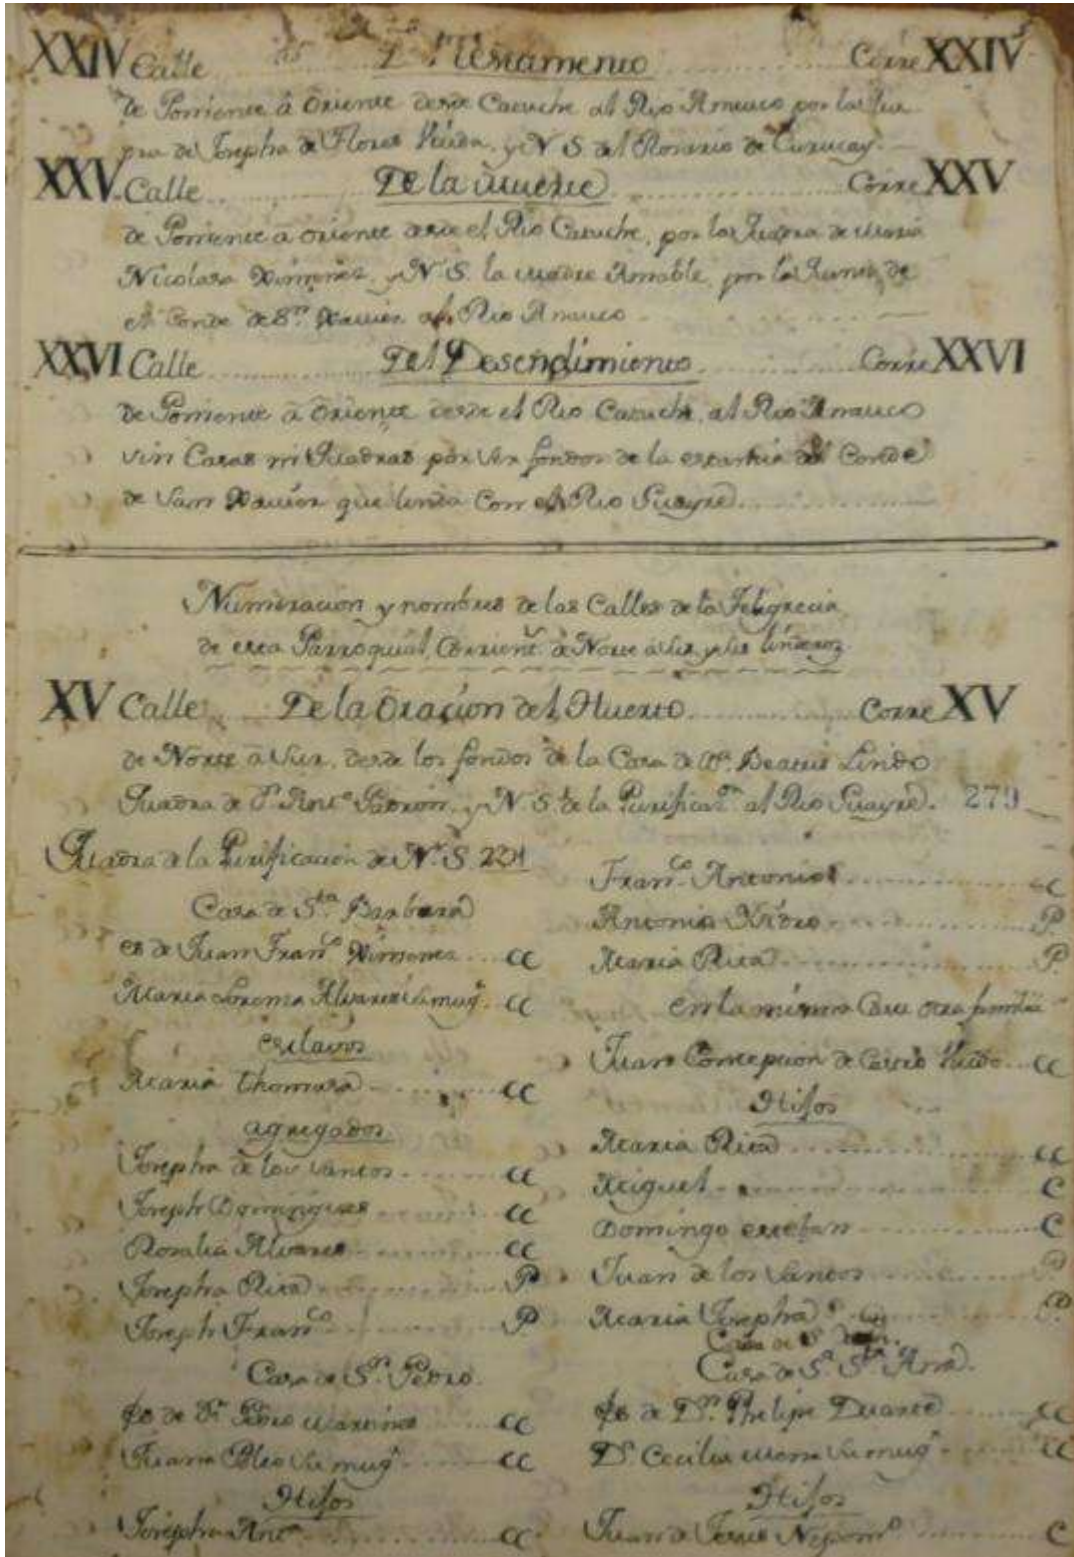 XXIV Calle Testamento Corre XXIV
de Poniente â Oriente desde Catuche al Rio Anauco por la
de Josepha de Flores Viuda, y N S. del Rosario de Curucay.
XXV Calle De la Muerte Corre XXV
de Poniente â Oriente desde el Rio Catuche, por la Quadra de Maria
Nicolasa Ximenes, y N. S. la Madre Amable, por la de
el Conde de Sn. Xavier al Rio Anauco
XXVI Calle Del Desendimiento Corre XXVI
de Poniente â Oriente desde el Rio Catuche, al Rio Anauco
sin Casas ni Quadras por ser fondos de la estancia del Conde
de San Xavier que linda Con el Rio Guayre
Numeracion y nombres de las Calles de la Feligrecia
de esta Parroquial, Corriente de Norte â Sur, y sus linderos
XV Calle De la Oracion del Huerto Corre XV
de Norte â Sur, desde los fondos de la Casa de Beatris Lindo
Quadra de Padron, y N S. de la Purificasn. al Rio Guayre. 279
Quadra de la Purificacion de Na. S. 221
Casa de Sta. Barbara
es de Juan Franco. Ximenes CC
Maria Lorensa Alvares su mugr. CC
esclavos
Maria Thomasa CC
agregados
Josepha de los Santos CC
Joseph Domingues CC
Rosalia Alvares CC
Josepha Rita P
Joseph Franco. P
Casa de Sn. Pedro.
es de Dn. Pedro Martines CC
Juana Bles su mugr. CC
Hijos
Josepha Anta. CC
Franco. Antonio C
Antonio Ysidro P
Maria Rita P.
en la misma Casa otra familia
Juana Concepcion de Castro Viuda CC
Hijos
Maria Rita CC
Miguel C
Domingo esteban C
Juan de los Santos P
Maria Josepha P.
Casa de Sa. Sta. Ana.
es de Dn. Phelipe Duarte CC
Da. Cecilia su mugr. CC
Hijos
Juan de Jesus Nepomo. C